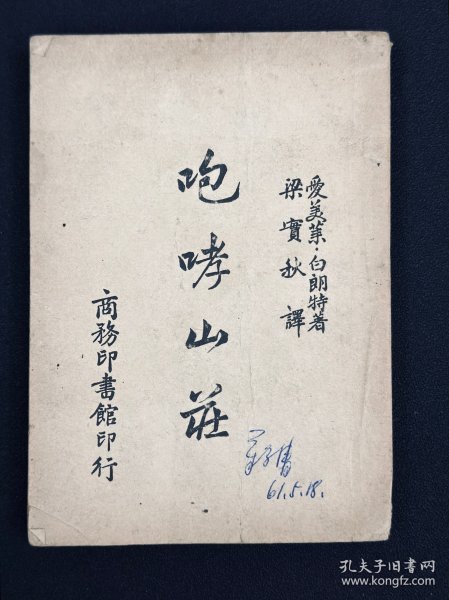 愛美萊·白朗特著
梁實秋譯
咆哮山莊
商務印書館印行
61.5.18.
孔夫子旧书网
www.kongfz.com